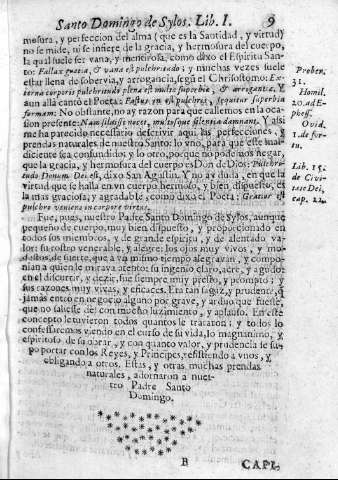 Santo Domingo de Sylos. Lib. I. 9
mosura, y perfeccion del alma (que es la Santidad, y virtud)
no se mide, ni se infiere de la gracia, y hermosura del cuerpo,
la qual suele ser vana, y mentirosa, como dixo el Espiritu San-
to: Fallax gratia, & vana est pulchritudo; y muchas vezes suele
estar llena de sobervia, y arrogancia, segũ el Chrisostomo: Ex-
terna corporis pulchritudo plena est multo superbia, & arrogantia, Y
aun allà cantò el Poeta: Fastus in est pulchris, sequitur superbia
formam: No obstante, no ay razon para que callemos en la oca-
sion presente: Nam silere necet, multosque silentia damnant. Y assi
me ha parecido necessario descrivir aqui las perfecciones, y
prendas naturales de nuestro Santo: lo vno, para que este mal-
diciente sea confundido: y lo otro, porque no podemos negar,
que la gracia, y hermosura del cuerpo es Don de Dios: Pulchri-
tudo Donum Dei est, dixo San Agustin. Y no ay duda, en que la
virtud que se halla en vn cuerpo hermoso, y bien dispuesto, es
la mas graciosa, y agradable, como dixo el Poeta: Gratior est
pulchro veniens in corpore virtus.
Fue, pues, nuestro Padre Santo Domingo de Sylos, aunque
pequeño de cuerpo, muy bien dispuesto, y proporcionado en
todos sus miembros, y de grande espiritu, y de alentado va-
lor: su rostro venerable, y alegre: los ojos muy vivos, y mo-
destos, de suerte, que a vn mismo tiempo alegravan, y compo-
nian a quien le mirava atento: su ingenio claro, acre, y agudo:
en el discurrir, y dezir, fue siempre muy presto, y prompto; y
sus razones muy vivas, y eficaces. Era tan sagaz, y prudente, q̃
jàmas entrò en negocio alguno por grave, y arduo que fuesse,
que no saliesse dèl con mucho luzimiento, y aplauso. En este
concepto le tuvieron todos quantos le trataron; y todos lo
confessaremos viendo en el curso de su vida, lo magnanimo, y
espiritoso de su obrar, y con quanto valor, y prudencia se su-
po portar con los Reyes, y Principes, resistiendo a vnos, y
obligando a otros. Estas, y otras muchas prendas
naturales, adornaron a nues-
tro Padre Santo
Domingo.
Prober.
31.
Homil.
20. ad E-
phes.
Ovid.
1. de for-
tun.
Lib. 15.
de Civi-
tate Dei,
cap. 22.
B CAPI-